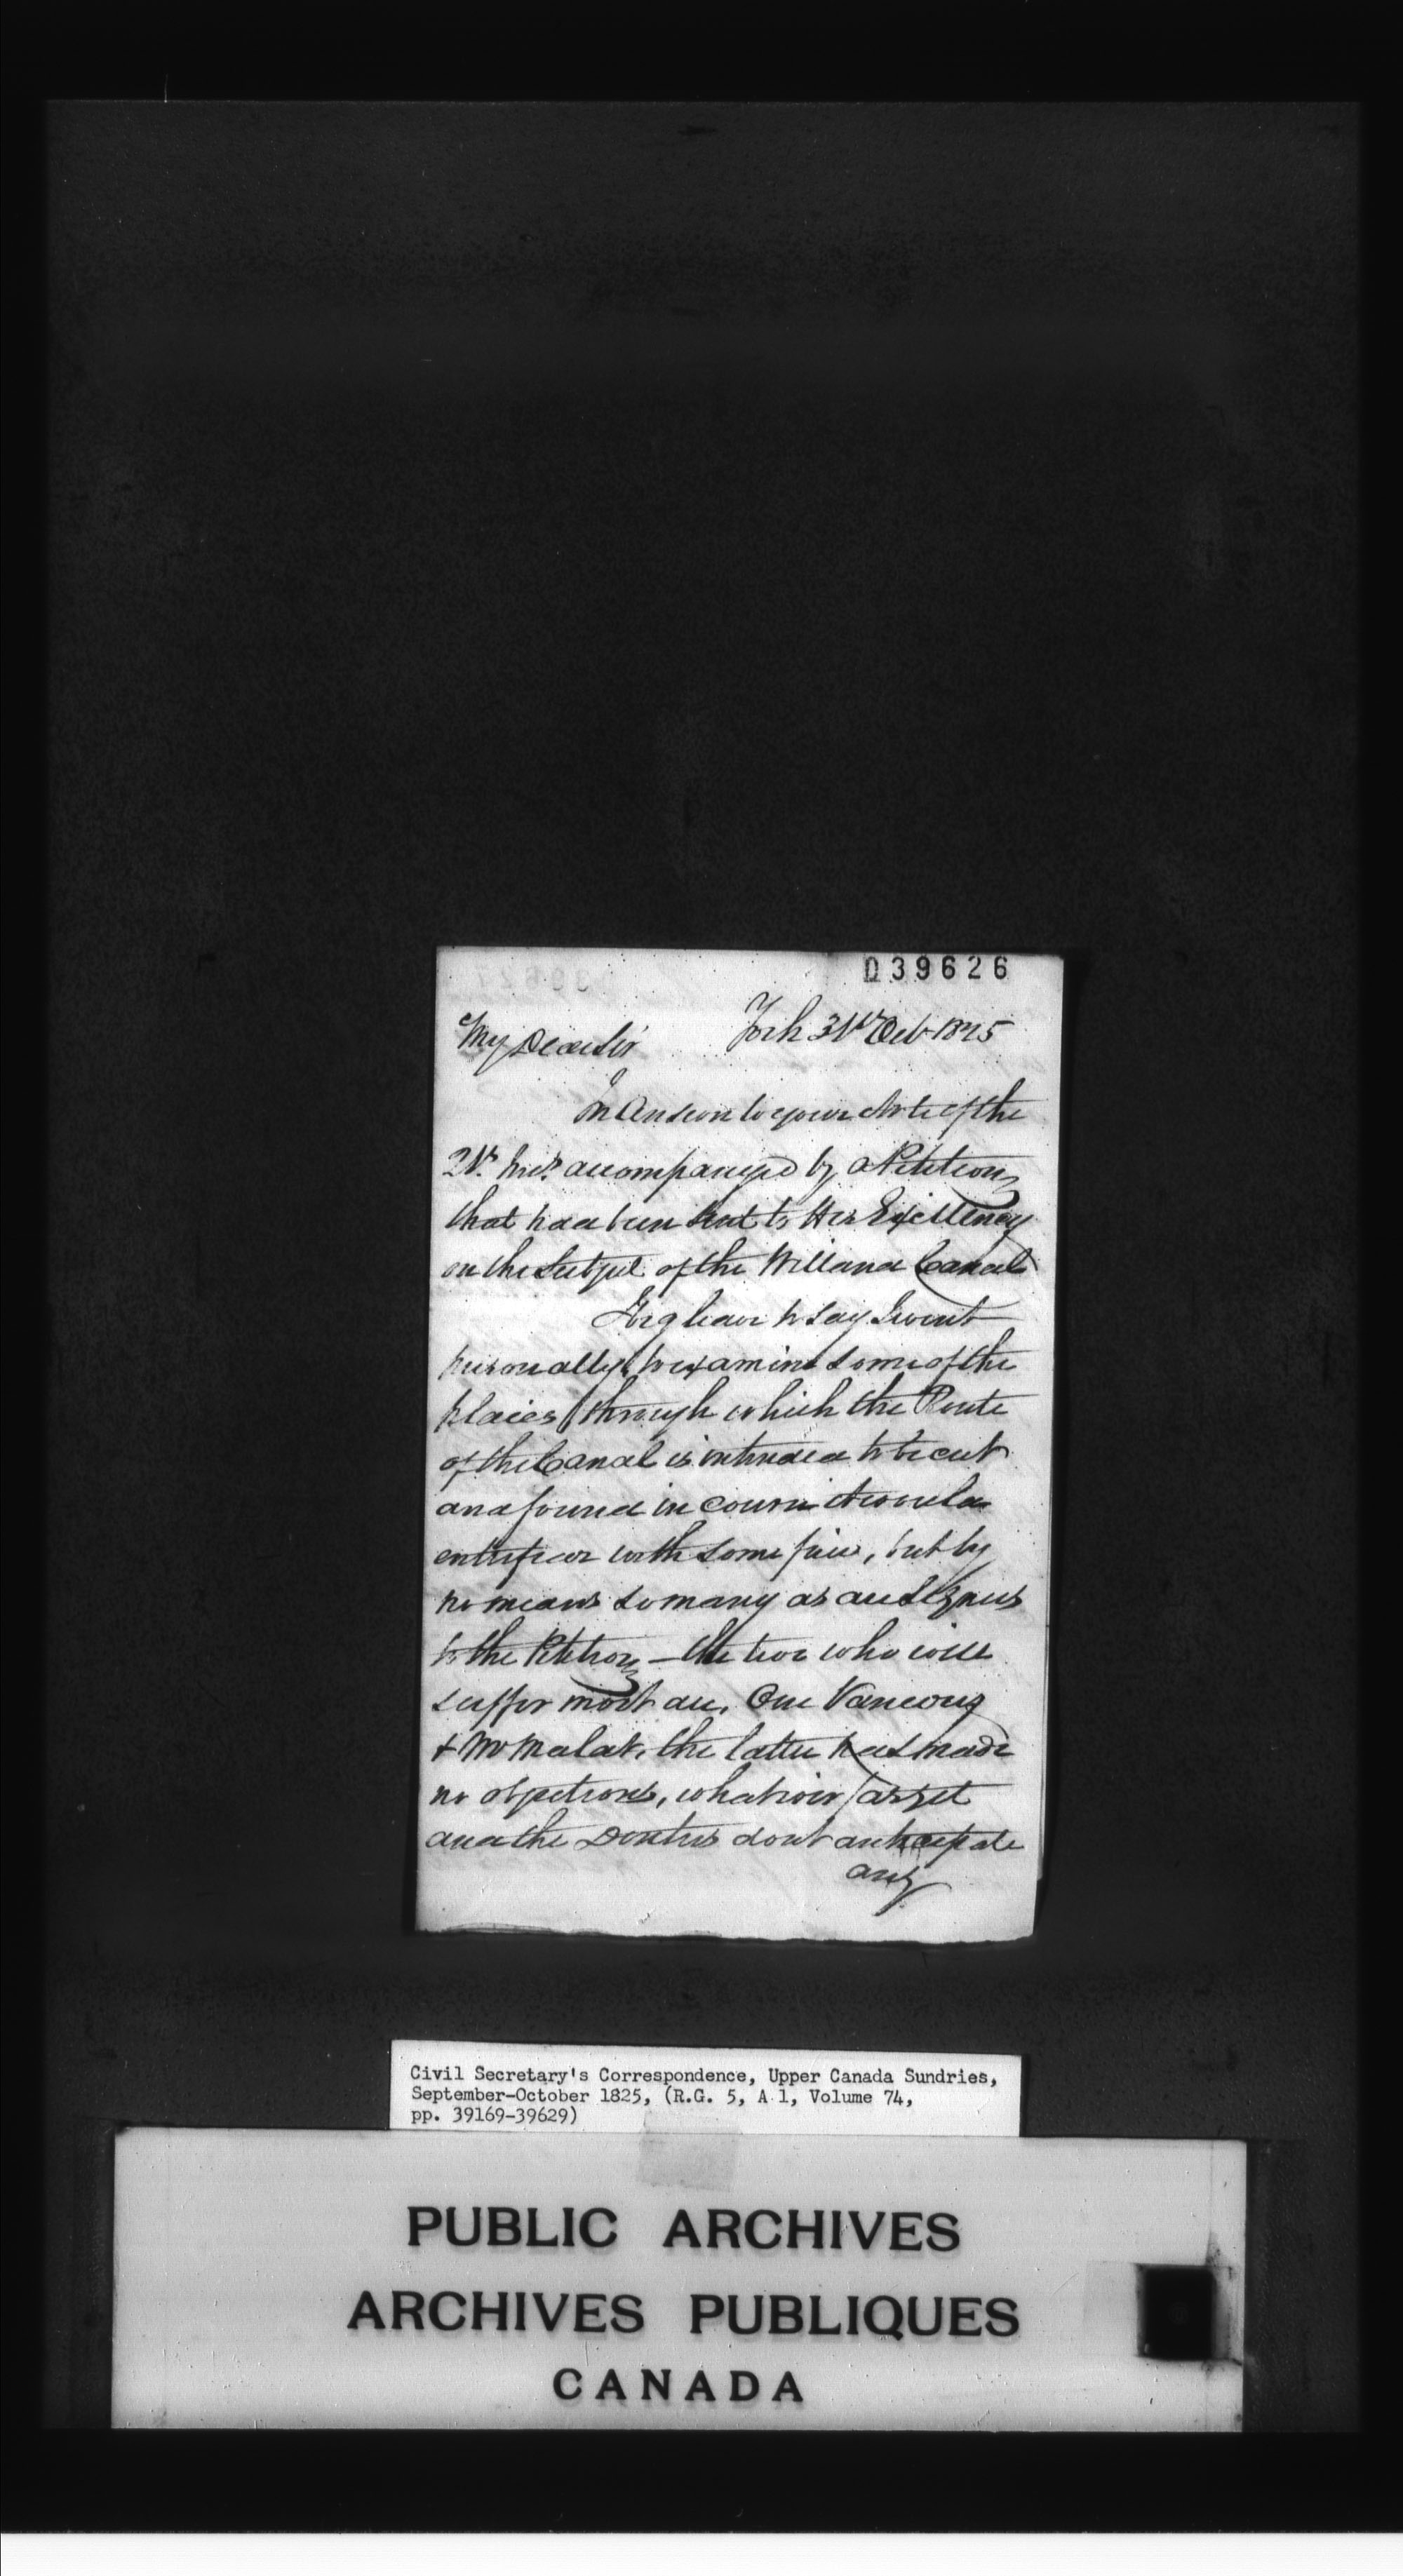 039626
My Dear Sir York 31st Oct 1825
In Answer to your Note of the
21st Inst. accompanyed by a Petition
that had been sent to His Excellency
on the Subject of the Welland Canal
I beg leave to say I went
personally to examine some of the
places through which the Route
of the Canal is intended to be cut
and found in course it would
enterfear with some few, but by
no means so many as are Signees
to the Petition — the two who will
suffer most are, One
& Mr the latter has made
no objections, whatever as yet
and the dont anticipate
any
Civil Secretary's Correspondence, Upper Canada Sundries,
September-October 1825, (R.G. 5, A 1, Volume 74,
pp. 39169-39629)
PUBLIC ARCHIVES
ARCHIVES PUBLIQUES
CANADA